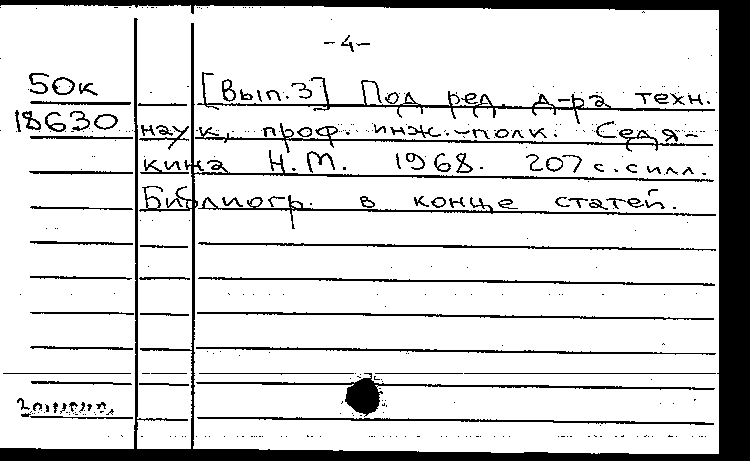 -4-
50к [Вып.3] Под ред. д-ра техн.
18630 наук, проф. инж.-полк. Седя-
кина Н.М. 1968. 207 с. с илл.
Библиогр. в конце статей.